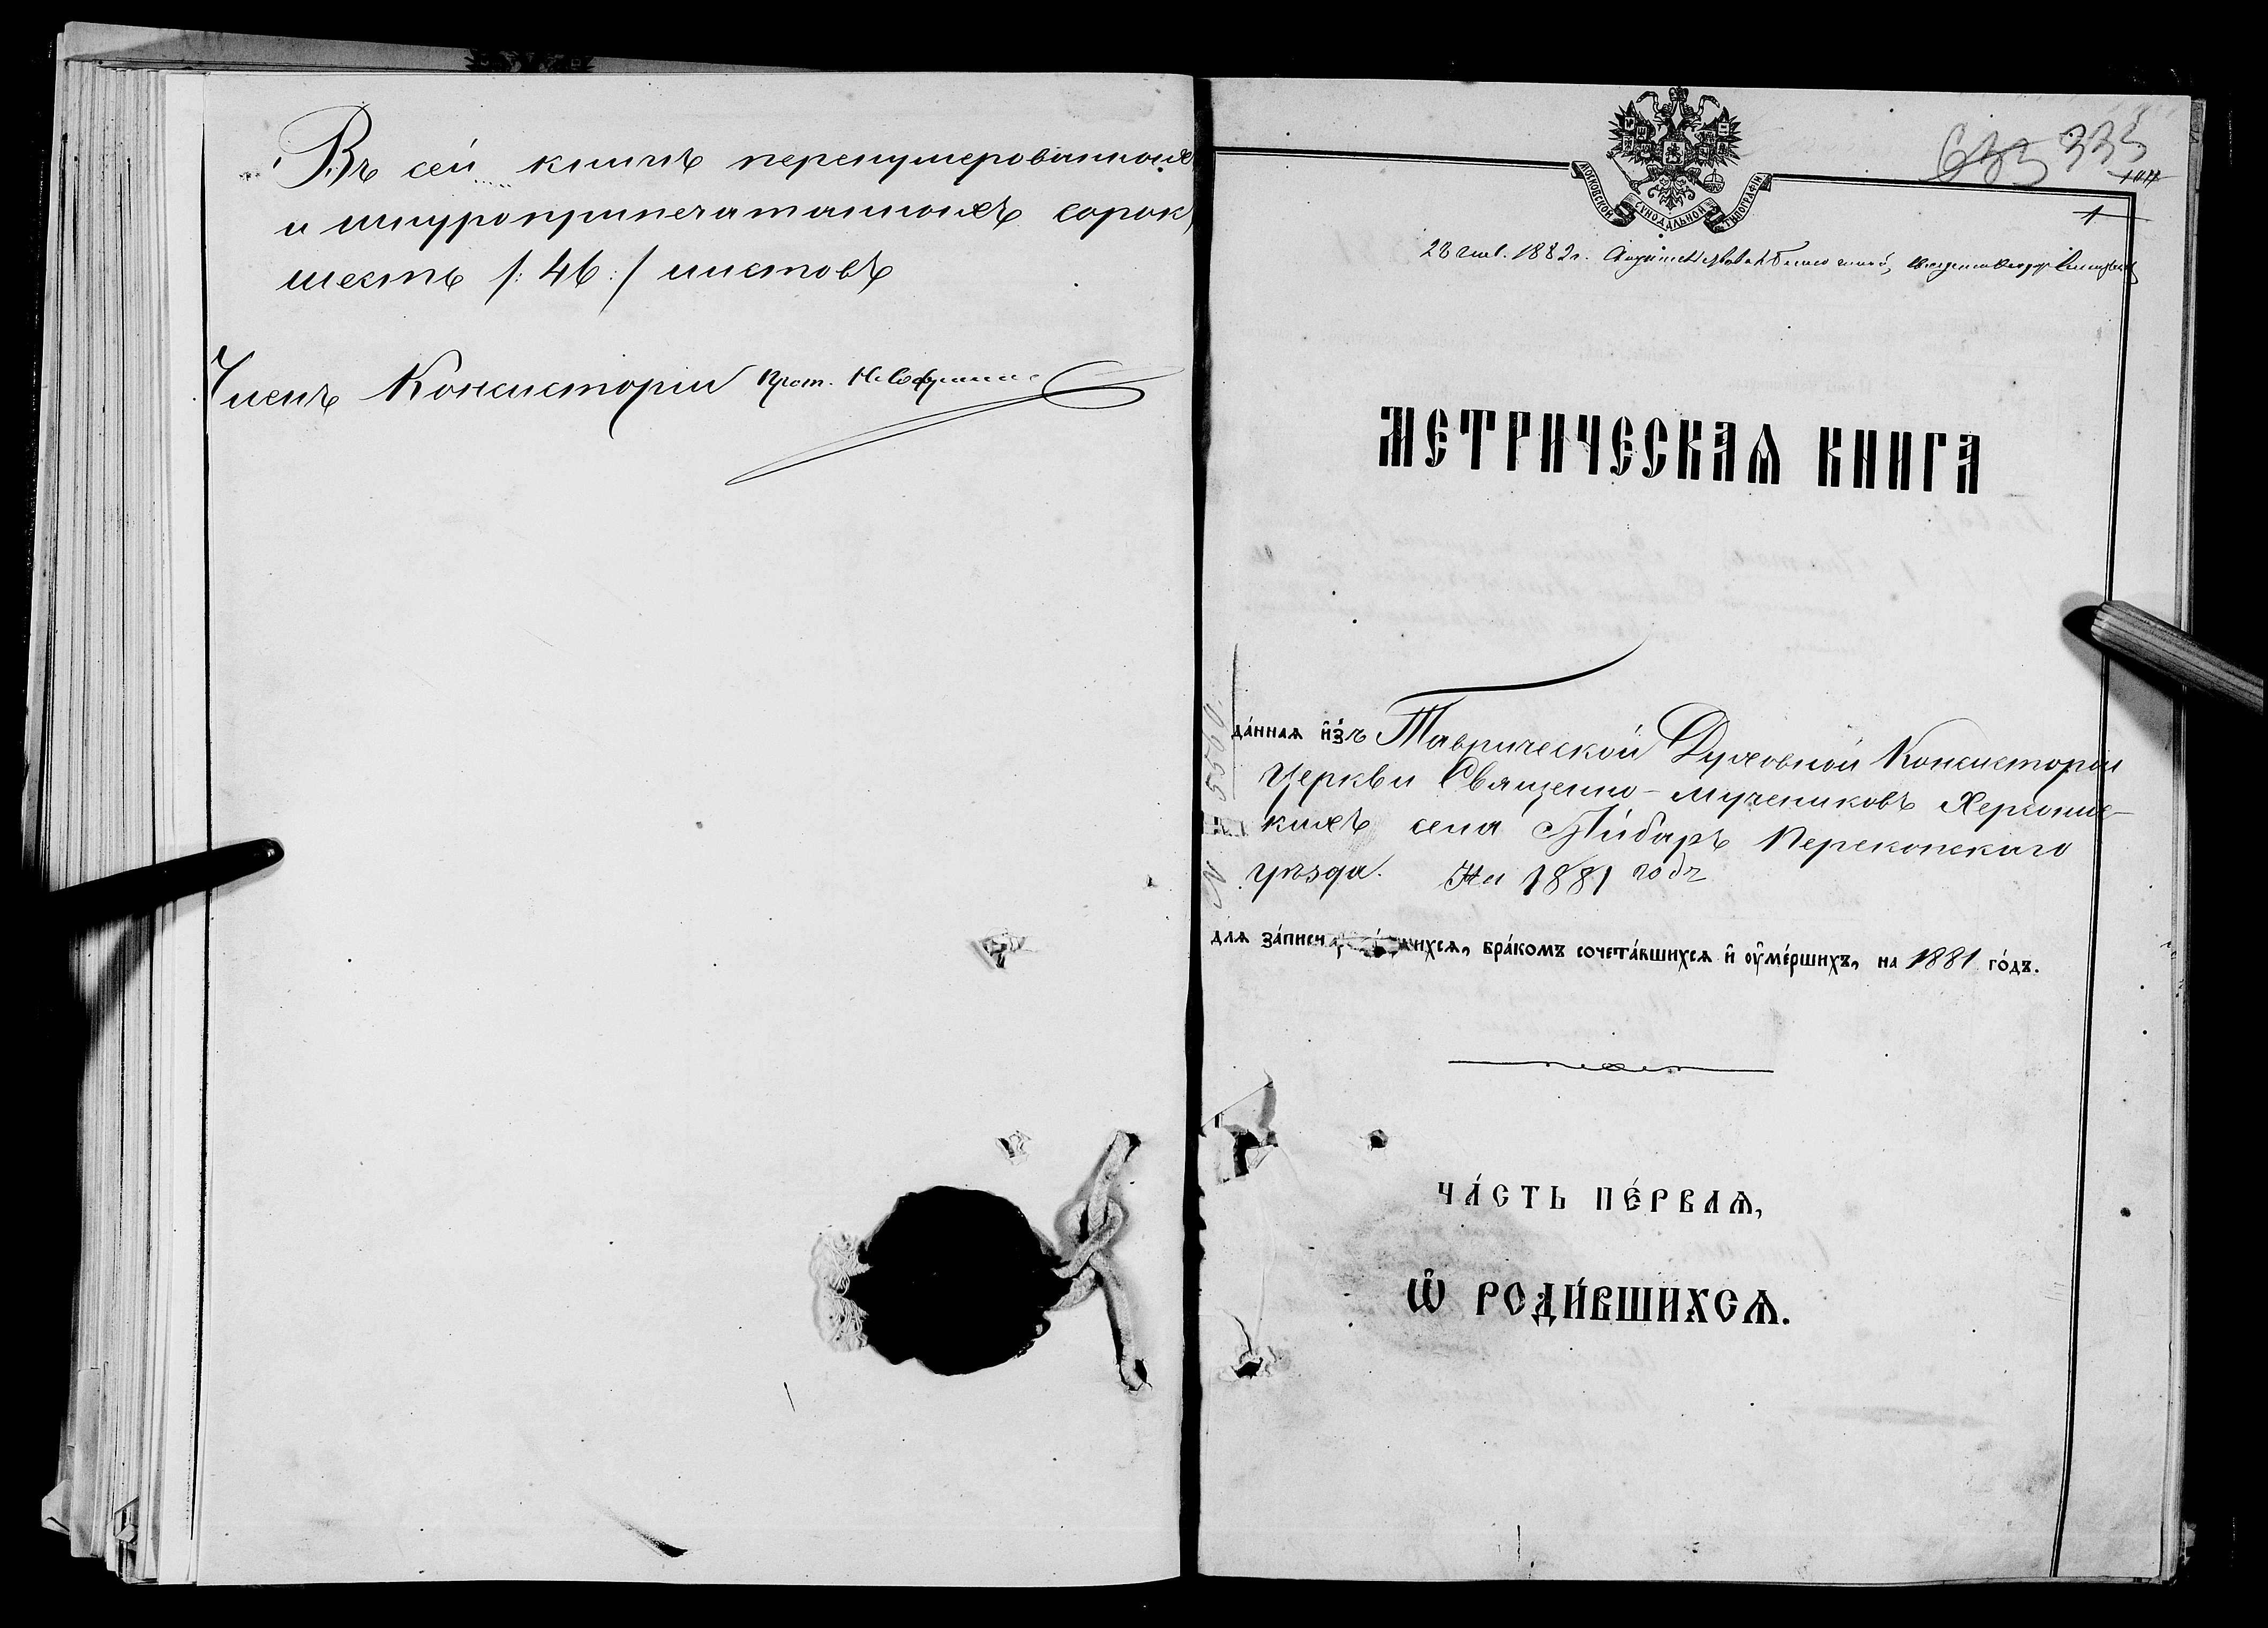 Въ сей книгѣ перенумерованныхъ
и шнуроприпечатанныхъ сорокъ
шесть /: 46 :/ листовъ
Членъ Консисторіи Прот.
335
1
МОСКОВСКОЙ СУНОДАЛЬНОЙ ТИПОГРАФІИ
28 1882 г.
МЕТРИЧЕСКАѦ КНИГА
да́ннаѧ и҆зъ Таврической Духовной Консисторіи
Церкви Священно-мучениковъ Херсонис-
кихъ села Айбаръ Перекопскаго
уѣзда. На 1881 годъ
длѧ за́писи ихсѧ, бра́комъ сочета́вшихсѧ и҆ ᲂу҆ме́ршихъ, на 1881 го́дъ.
ЧА́СТЬ ПЕ́РВАѦ,
Ѡ҆ РОДИ́ВШИХСѦ.